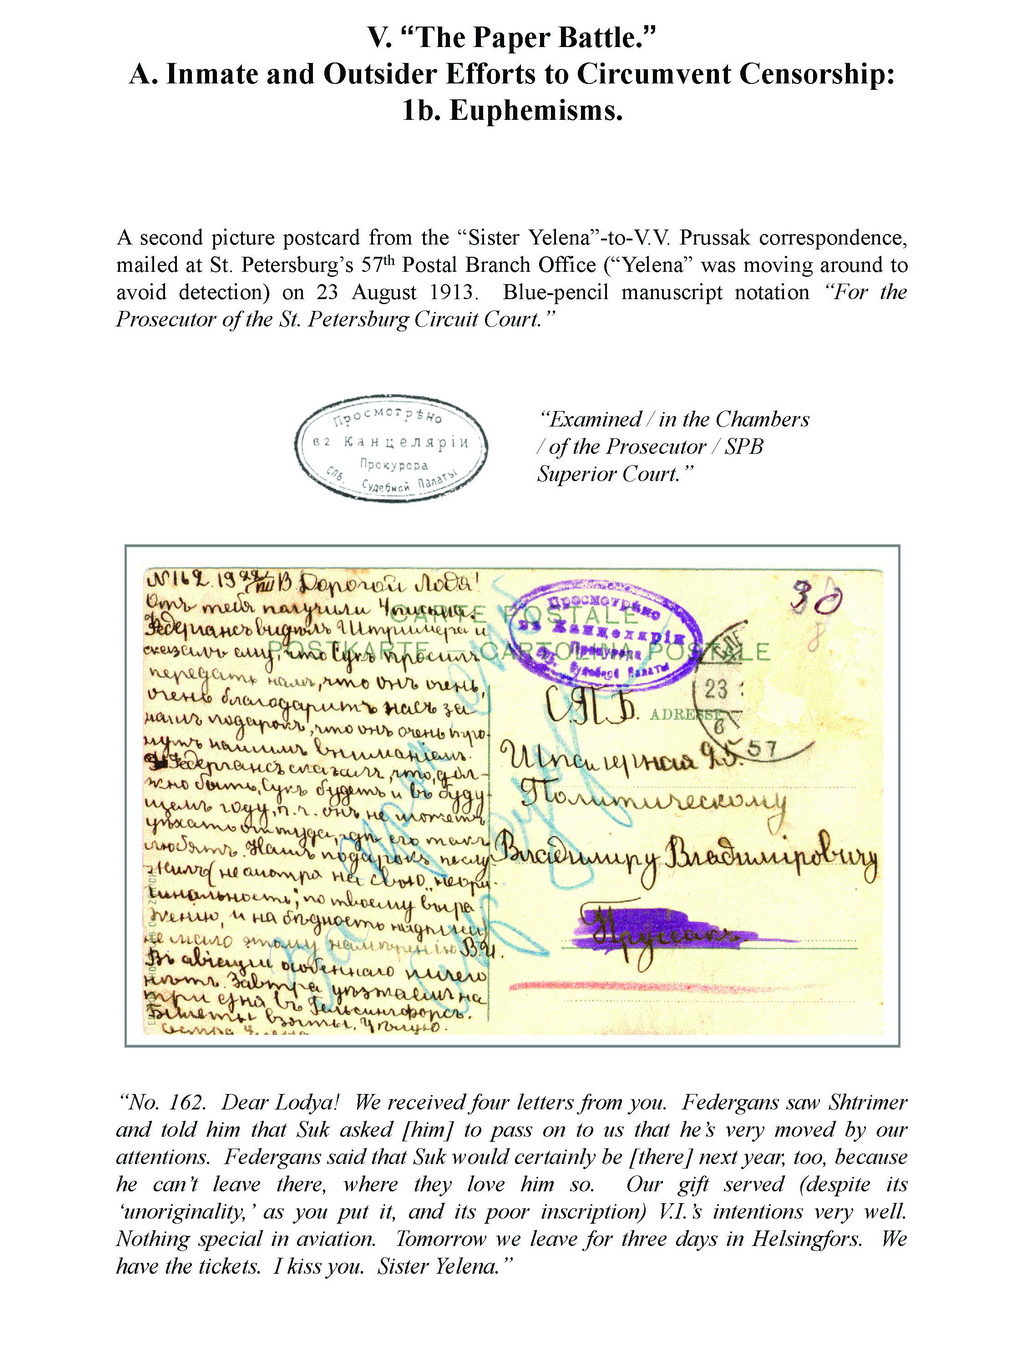 V. “The Paper Battle.”
A. Inmate and Outsider Efforts to Circumvent Censorship:
1b. Euphemisms.
A second picture postcard from the “Sister Yelena”-to-V.V. Prussak correspondence,
mailed at St. Petersburg’s 57th Postal Branch Office (“Yelena” was moving around to
avoid detection) on 23 August 1913. Blue-pencil manuscript notation “For the
Prosecutor of the St. Petersburg Circuit Court.”
Просмотрѣно
въ Канцеляріи
Прокурора
СПБ. Судебной Палаты
“Examined / in the Chambers
/ of the Prosecutor / SPB
Superior Court.”
№162. 19 22/VIII 13 Дорогой Лодя!
Отъ тебя получили 4 письма.
Федергансъ видѣлъ Штримера и
сказалъ ему, что Сукъ просилъ
передать намъ, что онъ очень,
очень благодаритъ насъ за
нашъ подарокъ, что онъ очень тро-
нутъ нашимъ вниманіемъ.
Федергансъ сказалъ, что, дол-
жно быть, Сукъ будетъ и въ буду-
щемъ году, п.ч. онъ не можетъ
уѣхать оттуда, гдѣ его такъ
любятъ. Нашъ подарокъ послу-
жилъ (не смотря на свою „неори-
гинальность“, по твоему выра-
женію, и на бѣдность надписи)
не мало этому намѣренію В.И.
Въ авіаціи особеннаго ничего
нѣтъ. Завтра уѣзжаемъ на
три дня въ Гельсингфорсъ.
Билеты взяты. Цѣлую.
Сестра Елена.
CARTE POSTALE
POSTKARTE — CARTOLINA POSTALE
Просмотрѣно
въ Канцеляріи
Прокурора
СПБ. Судебной Палаты
30
8
23
6
57
С.П.Б. ADRESSE
Шпалерная 25.
Политическому
Владимиру Владимировичу
Пруссакъ
“No. 162. Dear Lodya! We received four letters from you. Federgans saw Shtrimer
and told him that Suk asked [him] to pass on to us that he’s very moved by our
attentions. Federgans said that Suk would certainly be [there] next year, too, because
he can’t leave there, where they love him so. Our gift served (despite its
‘unoriginality,’ as you put it, and its poor inscription) V.I.’s intentions very well.
Nothing special in aviation. Tomorrow we leave for three days in Helsingfors. We
have the tickets. I kiss you. Sister Yelena.”